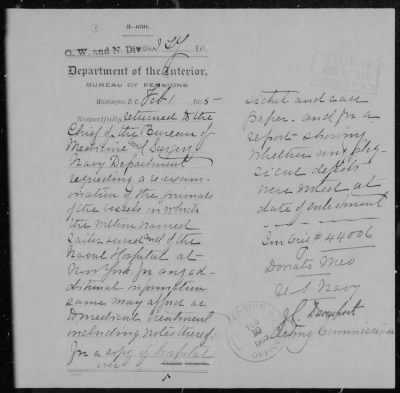 3-050.
O. W. and N. Div.
Department of the Interior.
BUREAU OF PENSIONS
Washington, D.C. Feb 1, 1915
Respectfully returned to the
Chief of the Bureau of
Medicine and Surgery
Navy Department
requesting a re-exam-
ination of the journals
of the vessels in which
the within named
sailor served and of the
Naval Hospital at
New York for any ad-
ditional information
same may afford as
to medical treatment
including notes thereof:
for a copy of hospital
ticket and case
paper and for a
report showing
whether any phy-
sical defects
were noted at
date of enlistment
Inv Orig # 44006
Donato Meo
U S Navy
Davenport
Acting Commissioner